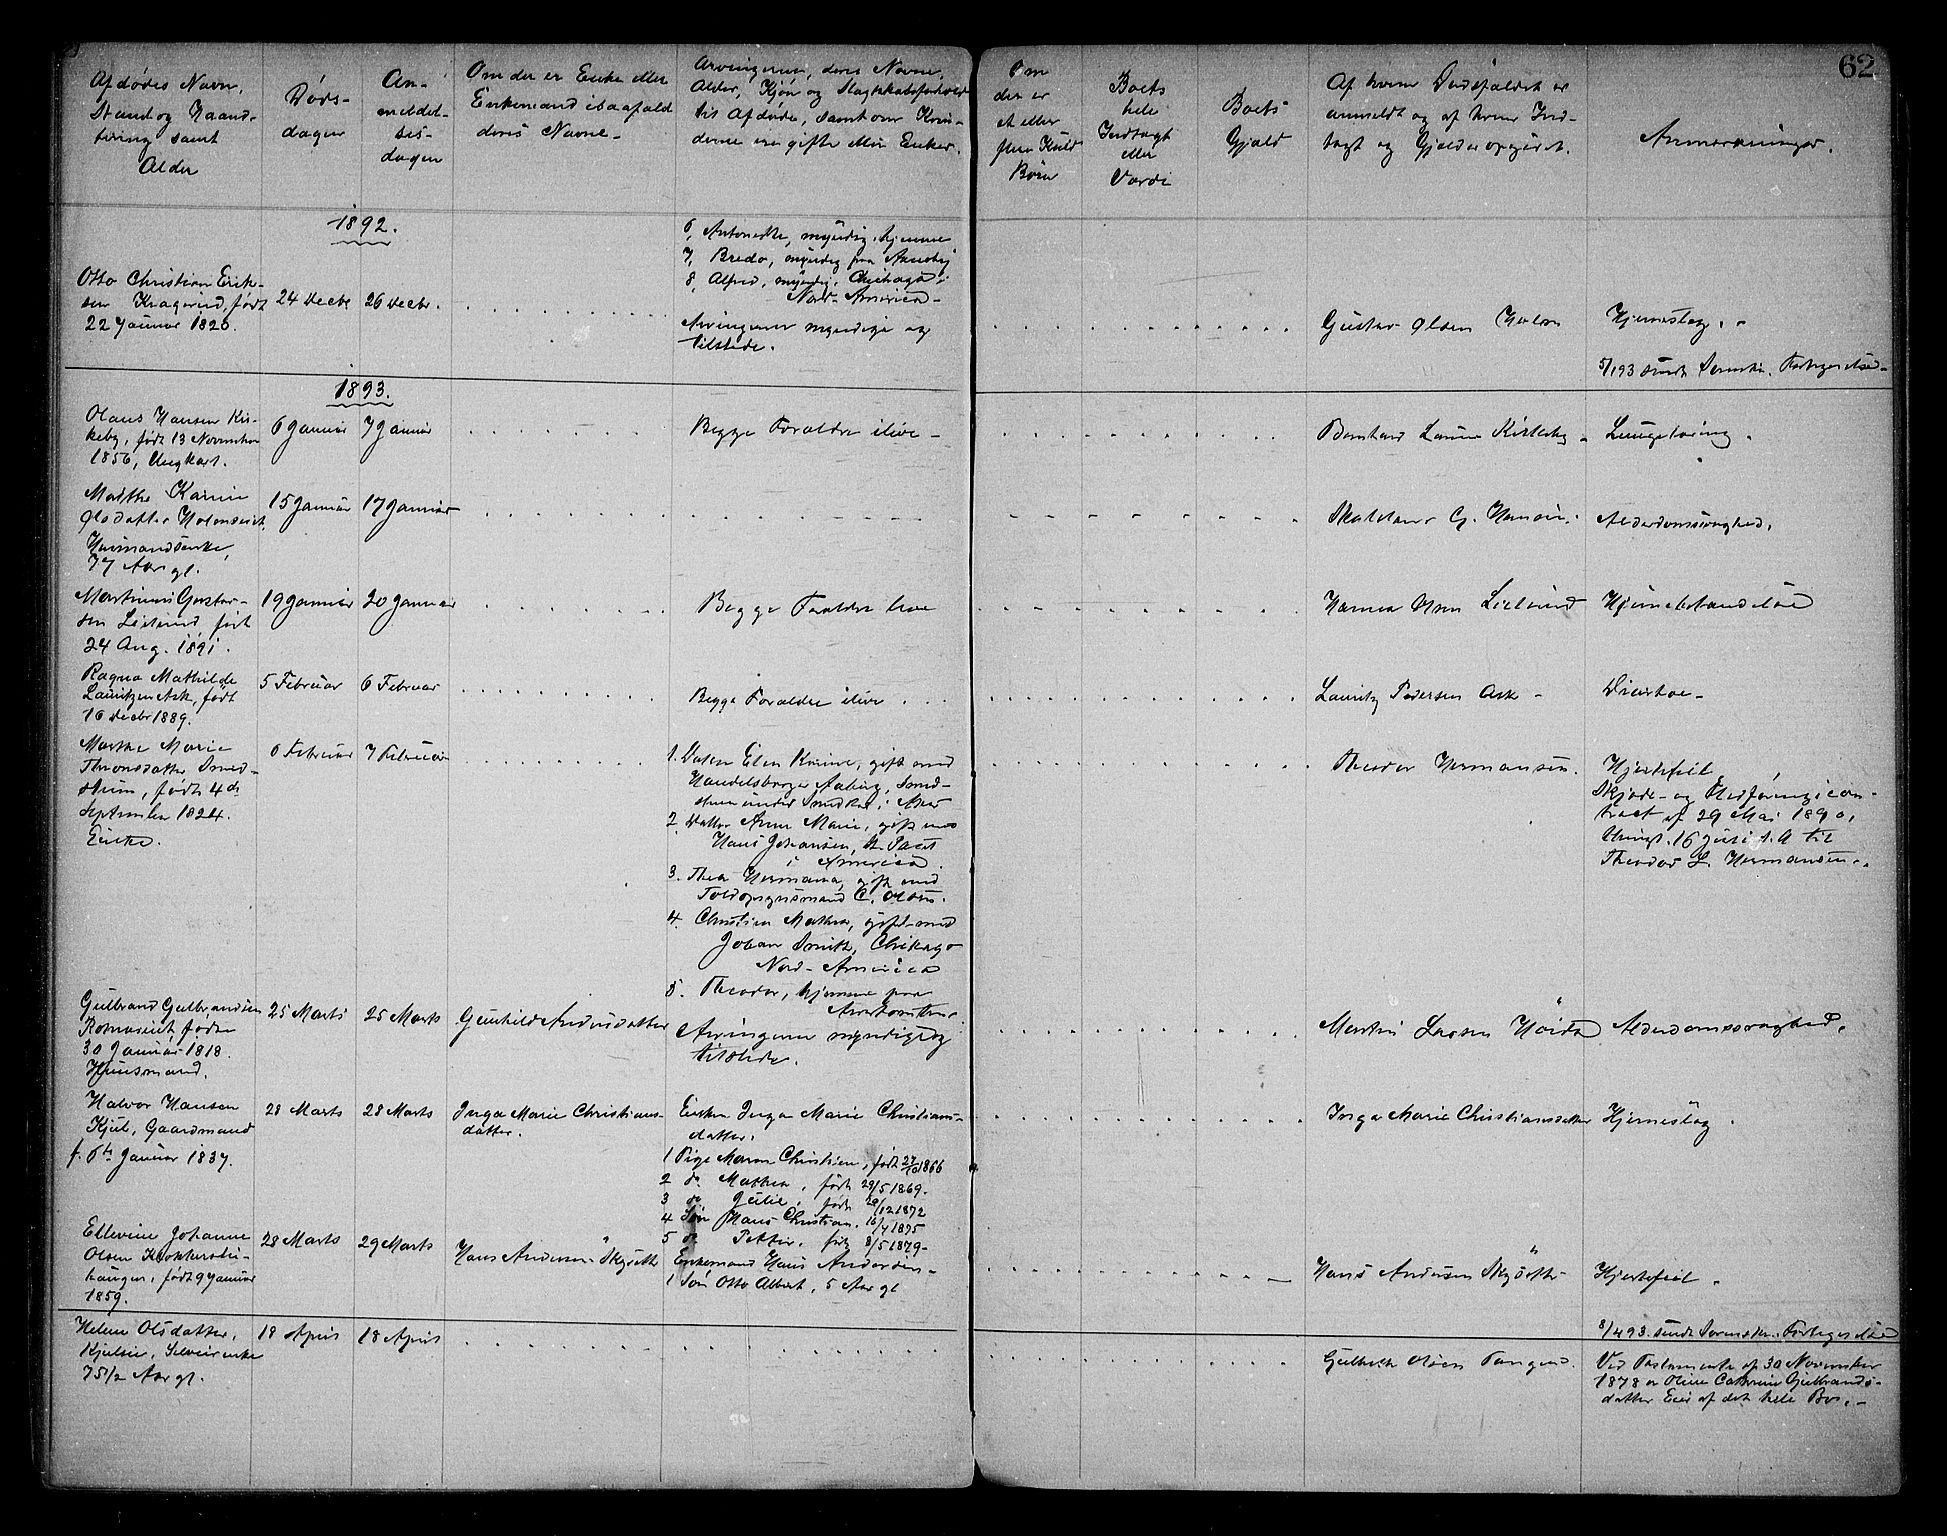 62
Afdødes Navn,
Stand og Haand-
tering samt
Alder
Døds-
dagen
An-
meldel-
ses-
dagen
Om der er Enke eller
Enkemand i saafald
deres Navne -
Arvingerne, deres Navne,
Alder, Kjøn og Slægtskabsforhold
til Afdøde, samt om Kvin-
derne ere gifte eller Enker.
Om
der er
et eller
flere Kuld
Børn
Boets
hele
Indtægt
eller
Værdi
Boets
Gjæld
Af hvem Dødsfaldet er
anmeldt og af hvem Ind-
tægt og Gjæld er opgivet.
Anmærkninger.
1892.
Otto Christian Erik-
sen født
22 Januar 1826.
24 Decbr
26 Decbr.
6, Antonette, myndig, hjemme
7, Bredo, myndig paa
8, Alfred, myndig, Chicago i
Nord-America -
Arvingerne myndige og
tilstede.
Gustav Olsen Holm
Hjerneslag. -
5/1 93 sendt Sorensk. Fortegnelse -
1893.
Olaus Hansen Kir-
keby, født 13 November
1856, Ungkarl.
6 Januar
7 Januar
Begge Forældre ilive -
Bernhard Kirkeby -
Lungetæring.
Marthe Karine
Olsdatter
Husmandsenke,
77 Aar gl.
15 Januar
17 Januar
G. Hansen.
Alderdomssvaghed.
Martinius Gustav-
sen født
24 Aug. 1891.
19 Januar
20 Januar
Begge Forældre leve
Hjernebetændelse
Ragna Mathilde
Lauritzen Ask, født
16 Decbr 1889.
5 Februar
6 Februar
Begge Forældre ilive
Lauritz Pedersen Ask -
Diarhoe -
Marthe Marie
Thronsdatter Smed-
stuen, født 4de
September 1824.
Enke.
6 Februar
7 Februar
1. Datter Elen Karine, gift med
Handelsborger Aaberg, Smed-
stuen under
2. Datter Anne Marie, gift med
Hans Johansen, St. Paul
i America.
3. Thea Hermana, gift med
Toldopsynsmand C. Olsen.
4. Christine Mathea, gift med
Johan Smith, Chikago
Nord-America
5. Theodor, hjemme paa
Arvingerne myndige og
tilstede.
Theodor Hermansen.
Hjertefeil
Skjøde- og Flødføringscon-
tract af 29 Mai 1890,
thingl. 16 Juli s. A til
Theodor L. Hermansen.
Gulbrand Gulbrandsen
født
30 Januar 1818.
Husmand.
25 Marts
25 Marts
Gunhild Andersdatter
Martin Larsen
Alderdomssvaghed.
Halvor Hansen
Kjul, Gaardmand
f. 6te Januar 1837.
28 Marts
28 Marts
Inga Marie Christians-
datter.
Enken Inga Marie Christians-
datter.
1 Pige Maren Christine, født 27/10 1866
2 do Mathea, født 29/5 1869.
3 do Julie, født 20/12 1872
4 Søn Hans Christian, 16/4 1875
5 do Petter, født 8/5 1879 -
Inga Marie Christiansdatter
Hjerneslag.
Ellevine Johanne
Olsen
født 9 Januar
1859.
28 Marts
29 Marts
Hans Andersen Skjøtte
Enkemand Hans Andersen -
1 Søn Otto Albert, 5 Aar gl
Hans Andersen Skjøtte
Hjertefeil.
8/4 93. sendt Sorensk. Fortegnelse
Helene Olsdatter,
75 1/2 Aar gl.
18 April
18 April
Gulbrand Olsen
Ved Testamente af 30 November
1878 er Oline Cathrine Gulbrands-
datter Eier af det hele Bo. -